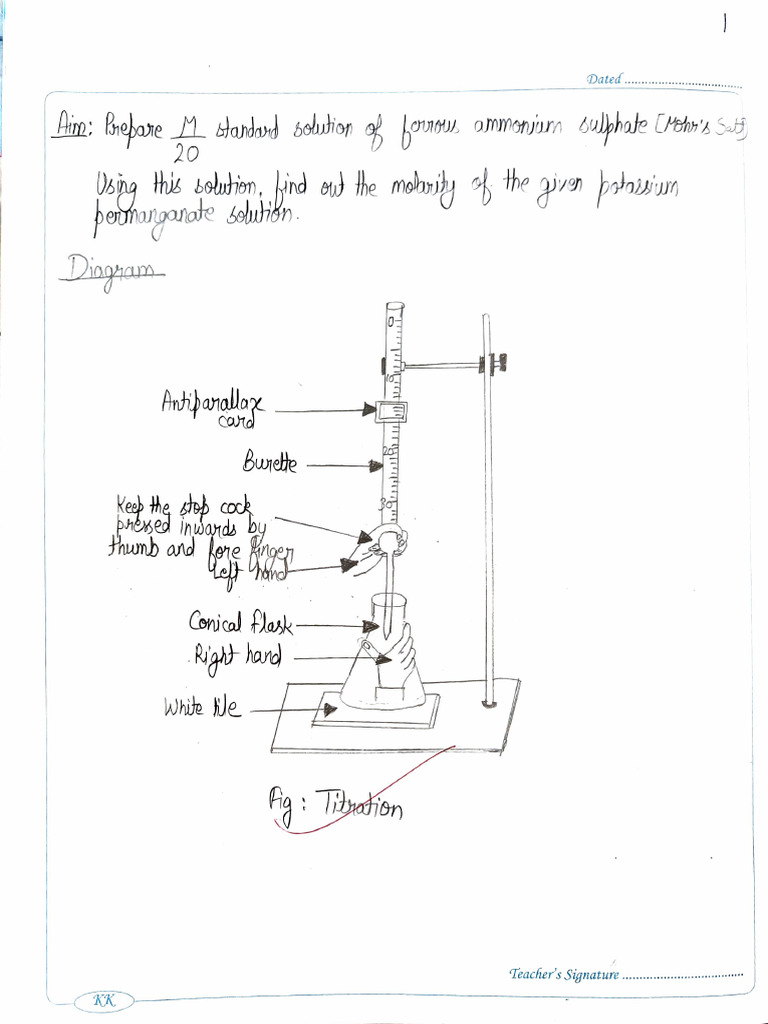 1
Dated
Aim: Prepare M/20 standard solution of ferrous ammonium sulphate [Mohr's Salt]
Using this solution, find out the molarity of the given potassium
permanganate solution.
Diagram
0
10
Antiparallax
card
20
Burette
30
Keep the stop cock
pressed inwards by
thumb and fore finger
Left hand
Conical flask
Right hand
White tile
Fig: Titration
Teacher's Signature
KK